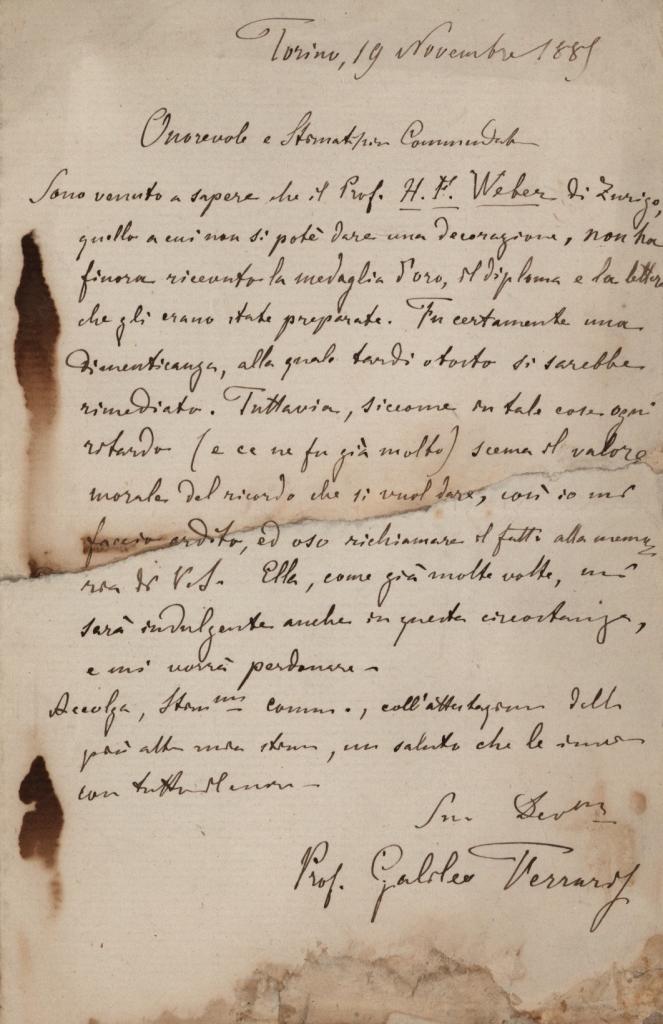 Torino, 19 Novembre 1885
Onorevole e Stimatissimo Commendat
Sono venuto a sapere che il Prof. H. F. Weber di Zurigo,
quello a cui non si potè dare una decorazione, non ha
finora ricevuto la medaglia d'oro, il diploma e la lettera
che gli erano state preparate. Fu certamente una
dimenticanza, alla quale tardi o tosto si sarebbe
rimediato. Tuttavia, siccome in tale cose ogni
ritardo (e ce ne fu già molto) scema il valore
morale del ricordo che si vuol dare, così io mi
faccio ardito, ed oso richiamare il fatto alla memo
ria di V.S. Ella, come già molte volte, mi
sarà indulgente anche in questa circostanza,
e mi vorrà perdonare -
Accolga, Stim^mo comm., coll'attestazione della
più alta mia stima, un saluto che le invio
con tutto il cuore -
Suo Dev^mo
Prof. Galileo Ferraris